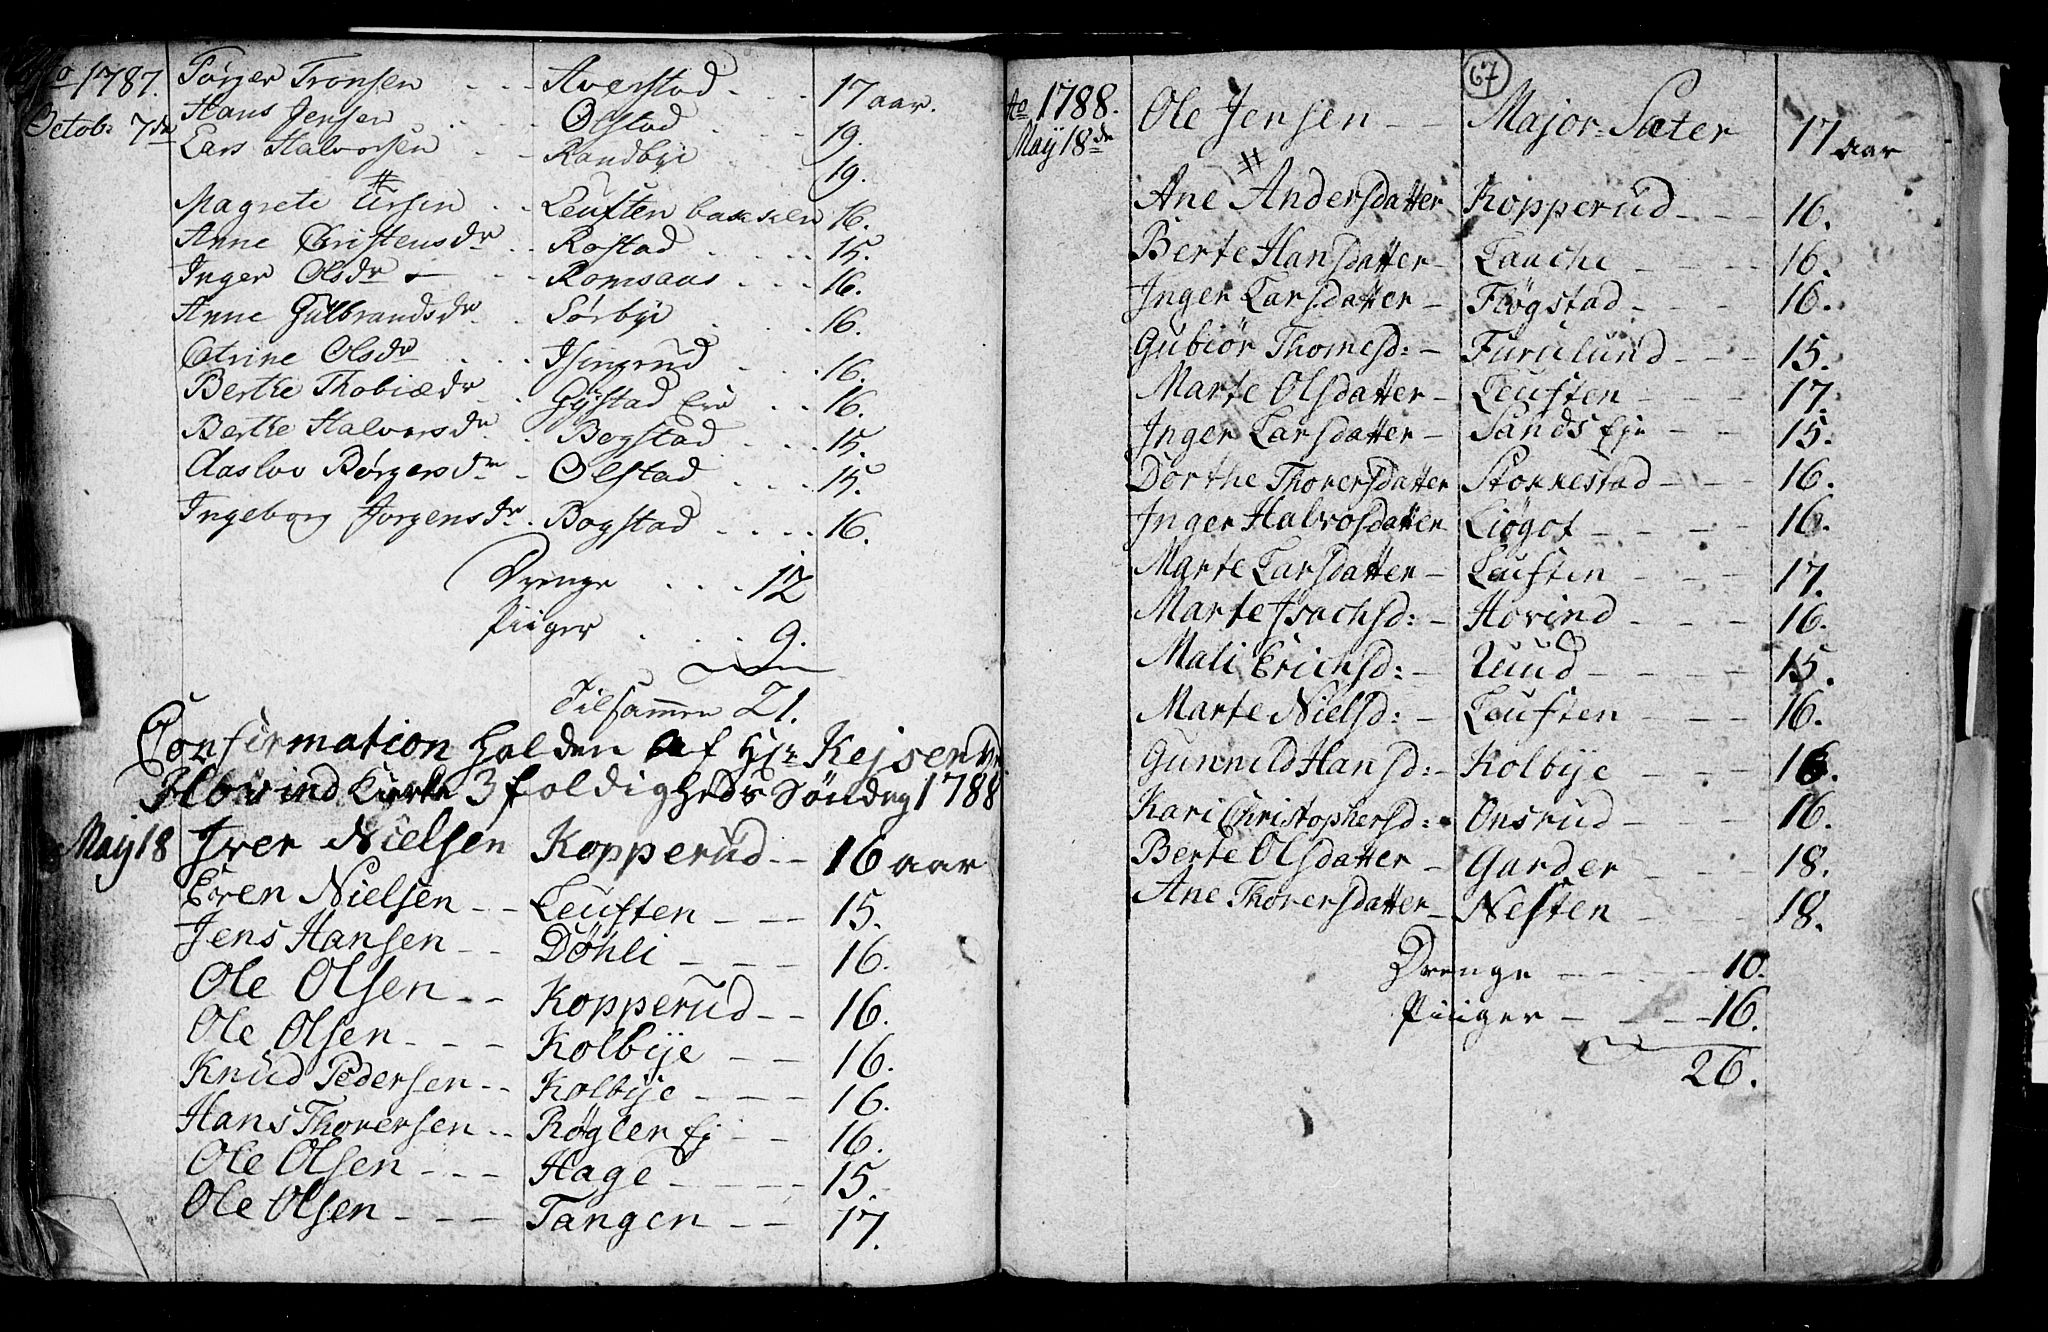 Ao 1787. Pörger Tronsen Averstad 17 aar.
Octobr 7de Hans Jensen Olstad 19.
Lars Halvorsen Randbye 19.
#
Magrete Leuften bakken 16.
Anne Christensdr Rostad 15.
Inger Olsdr Romsaas 16.
Anne Gulbrandsdr Sørbye 16.
Catrine Olsdr Isingrud 16.
Berthe Thobiædr Gystad Eie 16.
Berthe Halvorsdr Bogstad 15.
Aaslov Børgersdr Olstad 15.
Ingeborg Jorgensdr Bogstad 16.
Drenge 12
Piiger 9.
Tilsammen 21.
Confirmation holden af Hr Kejser
Hovind Kirke 3foldigheds Söndag 1788
May 18 Iver Nielsen Kopperud 16 aar
Even Nielsen Leuften 15.
Jens Hansen Döhli 16.
Ole Olsen Kopperud 16.
Ole Olsen Kolbye 16.
Knud Pedersen Kolbye 16.
Hans Thorersen Røgler Ej 16.
Ole Olsen Hage 15.
Ole Olsen Tangen 17.
67
Ao 1788. Ole Jensen Major-Sæter 17 aar
May 18de
#
Ane Andersdatter Kopperud 16.
Berte Hansdatter Lauche 16.
Inger Larsdatter Flögstad 16.
Gubiör Thomesd: Furulund 15.
Marte Olsdatter Leuften 17.
Inger Larsdatter Sands Eje 15.
Dorthe Thorersdatter Stokkestad 16.
Inger Halvosdatter Liøgot 16.
Marte Larsdatter Leuften 17.
Marte Isachsd: Hovind 16.
Mali Erichsd: Ruud 15.
Marte Nielsd: Leuften 16.
Gunnild Hansd: Kolbye 16.
Kari Christophersd: Onsrud 16.
Berte Olsdatter Garder 18.
Ane Thorersdatter Nesten 18.
Drenge 10.
Piiger 16.
26.